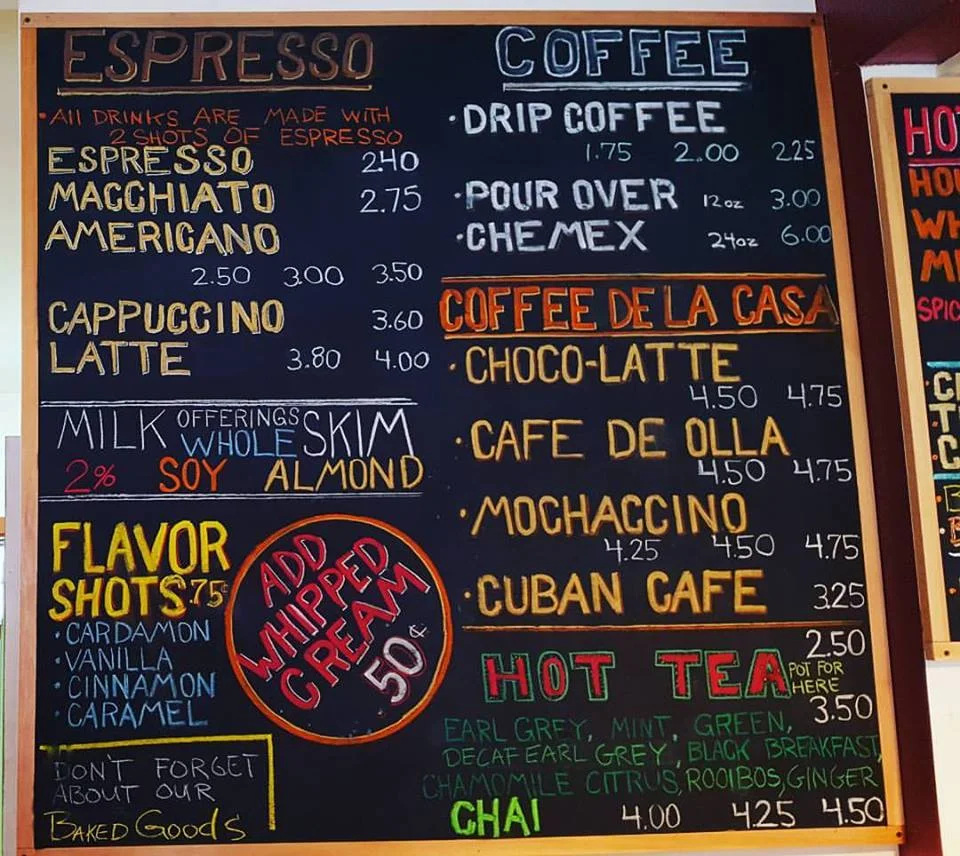 ESPRESSO
•All DRINKS ARE MADE WITH
2 SHOTS OF ESPRESSO
ESPRESSO 2.40
MACCHIATO 2.75
AMERICANO
2.50 3.00 3.50
CAPPUCCINO 3.60
LATTE 3.80 4.00
MILK OFFERINGS WHOLE SKIM
2% SOY ALMOND
FLAVOR
SHOTS .75¢
•CARDAMON
•VANILLA
•CINNAMON
•CARAMEL
ADD
WHIPPED
CREAM
50¢
DON'T FORGET
ABOUT OUR
BAKED GOODS
COFFEE
•DRIP COFFEE
1.75 2.00 2.25
•POUR OVER 12oz 3.00
•CHEMEX 24oz 6.00
COFFEE DE LA CASA
•CHOCO-LATTE
4.50 4.75
•CAFE DE OLLA
4.50 4.75
•MOCHACCINO
4.25 4.50 4.75
•CUBAN CAFE 3.25
HOT TEA 2.50
POT FOR
HERE
3.50
EARL GREY, MINT, GREEN,
DECAF EARL GREY, BLACK BREAKFAST,
CHAMOMILE CITRUS, ROOIBOS, GINGER
CHAI 4.00 4.25 4.50